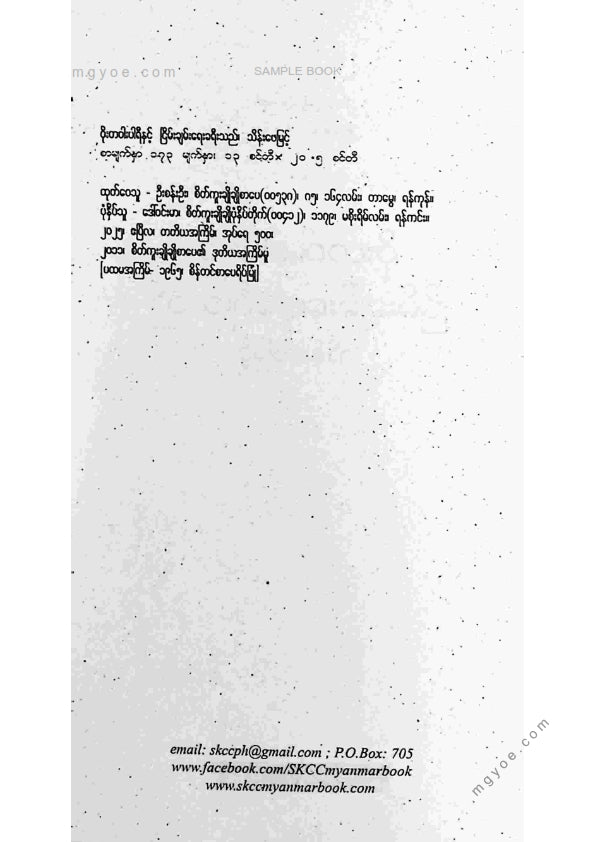 mgyoe.com
SAMPLE BOOK
ဗိုးတဝါးပါရီနှင့် ငြိမ်းချမ်းရေးခရီးသည်၊ သိန်းဖေမြင့်
စာမျက်နှာ ၁၇၃ မျက်နှာ၊ ၁၃ စင်တီ × ၂၀.၅ စင်တီ
ထုတ်ဝေသူ - ဦးစန်းဦး၊ စိတ်ကူးချိုချိုစာပေ(၀၀၅၃၈)၊ ဂ၅၊ ၁၆၄လမ်း၊ တာမွေ၊ ရန်ကုန်။
ပုံနှိပ်သူ - ဒေါ်ဝင်းမာ၊ စိတ်ကူးချိုချိုပုံနှိပ်တိုက်(၀၀၄၁၂)၊ ၁၁၇၉၊ မစိုးရိမ်လမ်း၊ ရန်ကင်း။
၂၀၂၅၊ ဧပြီလ၊ တတိယအကြိမ်၊ အုပ်ရေ ၅၀၀၊
၂၀၁၁၊ စိတ်ကူးချိုချိုစာပေ၏ ဒုတိယအကြိမ်မူ
[ပထမအကြိမ်- ၁၉၆၅၊ စိန်တင်စာပေရိပ်မြုံ]
email: skccph@gmail.com ; P.O.Box: 705
www.facebook.com/SKCCmyanmarbook
www.skccmyanmarbook.com
mgyoe.com